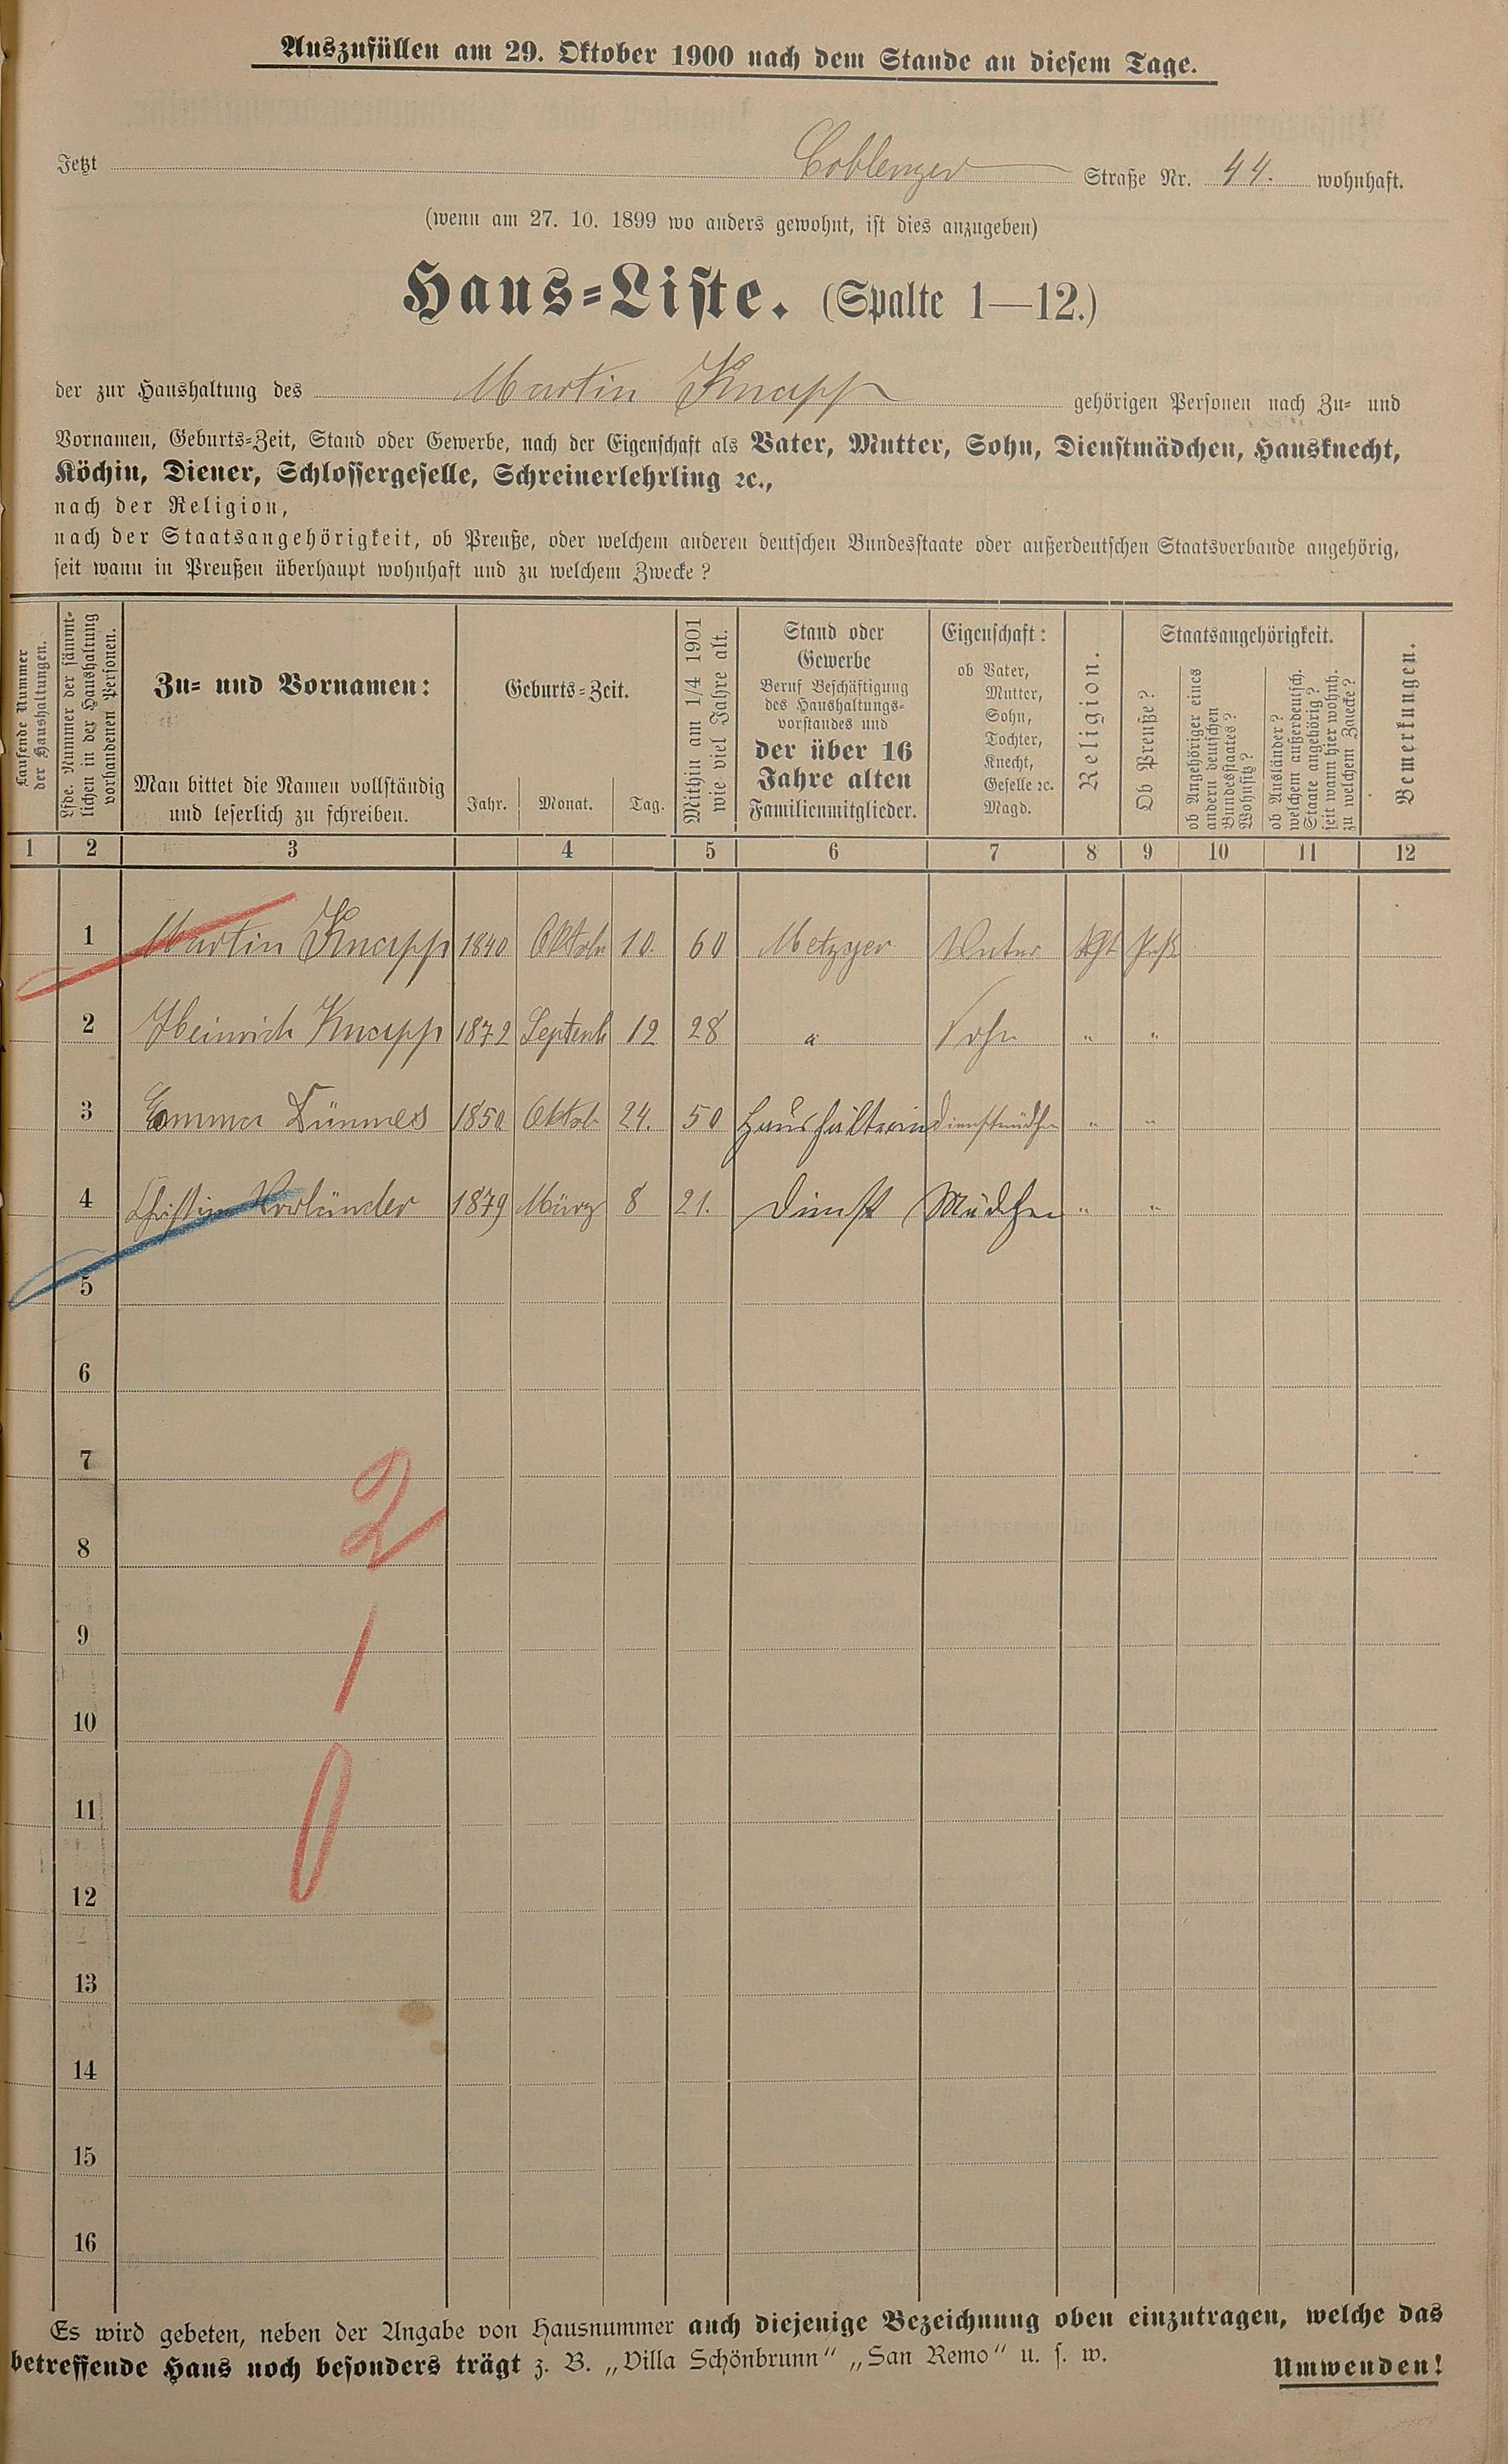 Auszufüllen am 29. Oktober 1900 nach dem Stande an diesem Tage.
Jetzt Coblenzer Straße Nr. 44. wohnhaft.
(wenn am 27. 10. 1899 wo anders gewohnt, ist dies anzugeben)
Haus-Liste. (Spalte 1—12.)
der zur Haushaltung des Martin Knapp gehörigen Personen nach Zu- und
Vornamen, Geburts-Zeit, Stand oder Gewerbe, nach der Eigenschaft als Vater, Mutter, Sohn, Dienstmädchen, Hausknecht,
Köchin, Diener, Schlossergeselle, Schreinerlehrling ꝛc.,
nach der Religion,
nach der Staatsangehörigkeit, ob Preuße, oder welchem anderen deutschen Bundesstaate oder außerdeutschen Staatsverbande angehörig,
seit wann in Preußen überhaupt wohnhaft und zu welchem Zwecke?
Laufende Nummer
der Haushaltungen.
Lfde. Nummer der sämmt-
lichen in der Haushaltung
vorhandenen Personen.
Zu- und Vornamen:
Man bittet die Namen vollständig
und leserlich zu schreiben.
Geburts-Zeit.
Jahr. Monat. Tag.
Mithin am 1/4 1901
wie viel Jahre alt.
Stand oder
Gewerbe
Beruf Beschäftigung
des Haushaltungs-
vorstandes und
der über 16
Jahre alten
Familienmitglieder.
Eigenschaft:
ob Vater,
Mutter,
Sohn,
Tochter,
Knecht,
Geselle ꝛc.
Magd.
Religion.
Staatsangehörigkeit.
Ob Preuße?
ob Angehöriger eines
andern deutschen
Bundesstaates?
Wohnsitz?
ob Ausländer?
welchem außerdeutsch.
Staate angehörig?
seit wann hier wohnh.
zu welchem Zwecke?
Bemerkungen.
1 2 3 4 5 6 7 8 9 10 11 12
1 Martin Knapp 1840 Oktob 10. 60 Metzger Vater Kth Prß
2 Heinrich Knapp 1872 Septemb 12 28 " Sohn " "
3 Emma Dünnes 1850 Oktob 24. 50 Haushälterin Dienstmädchen " "
4 Christine Vorländer 1879 März 8 21. Dienst Mädchen " "
5
6
7
2
8
9
1
10
11
0
12
13
14
15
16
Es wird gebeten, neben der Angabe von Hausnummer auch diejenige Bezeichnung oben einzutragen, welche das
betreffende Haus noch besonders trägt z. B. „Villa Schönbrunn“ „San Remo“ u. s. w.
Umwenden!